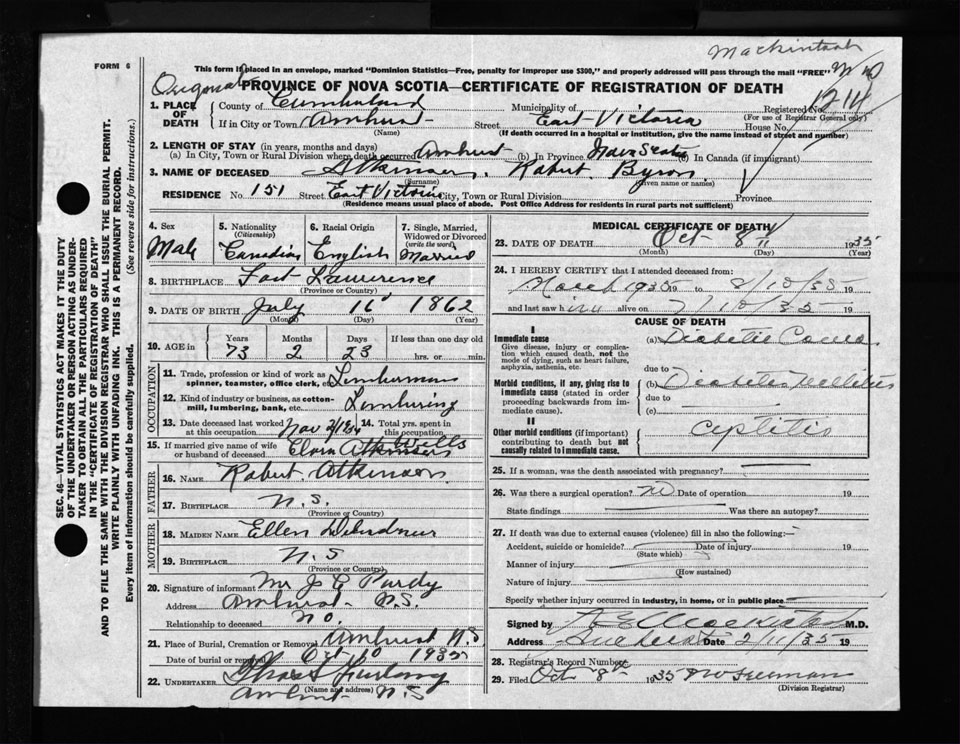 Mackintosh
FORM 6
This form if placed in an envelope, marked "Dominion Statistics—Free, penalty for improper use $300," and properly addressed will pass through the mail "FREE"
Original
PROVINCE OF NOVA SCOTIA—CERTIFICATE OF REGISTRATION OF DEATH
1214
1. PLACE OF DEATH
County of Cumberland Municipality of Registered No.
(For use of Registrar General only)
If in City or Town Amherst Street East Victoria House No.
(Name) (If death occurred in a hospital or institution, give the name instead of street and number)
2. LENGTH OF STAY (in years, months and days)
(a) In City, Town or Rural Division where death occurred Amherst (b) In Province Nova Scotia (c) In Canada (if immigrant)
3. NAME OF DECEASED Atkinson, Robert Byron
(Surname) (Given name or names)
RESIDENCE No 151 Street East Victoria City, Town or Rural Division Province
(Residence means usual place of abode. Post Office Address for residents in rural parts not sufficient)
4. Sex Male
5. Nationality (Citizenship) Canadian
6. Racial Origin English
7. Single, Married, Widowed or Divorced (write the word) Married
8. BIRTHPLACE Fort Lawrence
(Province or Country)
9. DATE OF BIRTH July 16 1862
(Month) (Day) (Year)
10. AGE in Years Months Days If less than one day old
73 2 23 hrs. or min.
OCCUPATION
11. Trade, profession or kind of work as spinner, teamster, office clerk, etc. Lumberman
12. Kind of industry or business, as cotton-mill, lumbering, bank, etc. Lumbering
13. Date deceased last worked at this occupation Nov 14. Total yrs. spent in this occupation
15. If married give name of wife or husband of deceased Clara Wells Atkinson
FATHER
16. NAME Robert Atkinson
17. BIRTHPLACE N.S.
(Province or Country)
MOTHER
18. MAIDEN NAME Ellen
19. BIRTHPLACE N.S
(Province or Country)
20. Signature of informant Mr J C Purdy
Address Amherst N.S.
Relationship to deceased No.
21. Place of Burial, Cremation or Removal Amherst N.S
Date of burial or removal Oct 10 1935
22. UNDERTAKER Furlong
(Name and address)
Amherst N S
MEDICAL CERTIFICATE OF DEATH
23. DATE OF DEATH Oct 8 1935
(Month) (Day) (Year)
24. I HEREBY CERTIFY that I attended deceased from:
March 1935 19 to 8/10/35 19
and last saw him alive on 7/10/35 19
CAUSE OF DEATH
I
Immediate cause (a) Diabetic Coma
Give disease, injury or complication which caused death, not the mode of dying, such as heart failure, asphyxia, asthenia, etc.
due to
Morbid conditions, if any, giving rise to immediate cause (stated in order proceeding backwards from immediate cause).
(b) Diabetes Mellitus
due to
(c)
II
Other morbid conditions (if important) contributing to death but not causally related to immediate cause.
25. If a woman, was the death associated with pregnancy?
26. Was there a surgical operation? No Date of operation 19
State findings Was there an autopsy?
27. If death was due to external causes (violence) fill in also the following:—
Accident, suicide or homicide? Date of injury 19
(State which)
Manner of injury
(How sustained)
Nature of injury
Specify whether injury occurred in industry, in home, or in public place
Signed by Mackintosh M.D.
Address Amherst Date 2/11/35 19
28. Registrar's Record Number
29. Filed Oct 8th 1935 Freeman
(Division Registrar)
SEC. 46—VITAL STATISTICS ACT MAKES IT THE DUTY OF THE UNDERTAKER OR PERSON ACTING AS UNDERTAKER TO OBTAIN ALL THE PARTICULARS REQUIRED IN THE "CERTIFICATE OF REGISTRATION OF DEATH" AND TO FILE THE SAME WITH THE DIVISION REGISTRAR WHO SHALL ISSUE THE BURIAL PERMIT.
WRITE PLAINLY WITH UNFADING INK. THIS IS A PERMANENT RECORD.
Every item of information should be carefully supplied. (See reverse side for instructions.)